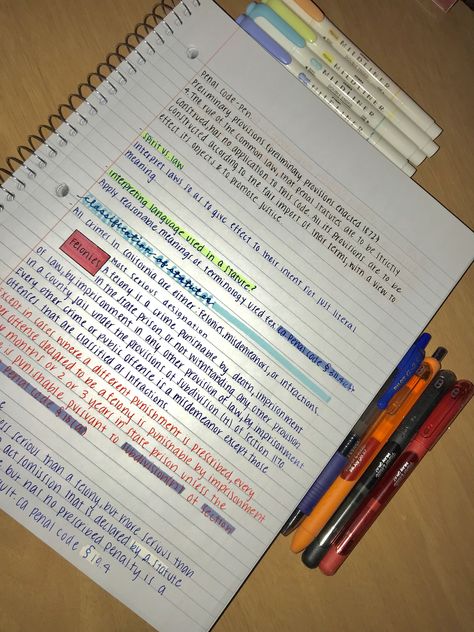 penal code - pen
preliminary provisions [preliminary provisions enacted 1872]
4. The rule of the common law, that penal statutes are to be strictly
construed, has no application to this Code. All its provisions are to be
according to the fair import of their terms, with a view to
effect its objects & to promote justice
spirit vs. law
interpret laws so as to give effect to their intent not just literal
meaning
interpreting language used in a statute?
Apply reasonable meaning of terminology used
classification of
All crimes in California are either: felonies, misdemeanors, or infractions.
Felonies
Most serious designation
A felony is a crime punishable by death, imprisonment
in the state prison, or not withstanding any other provision
of law, by imprisonment
in a county jail under the provisions of subdivision (h) of section 1170.
Every other crime or public offense is a misdemeanor except those
offenses that are classified as infractions.
Except in cases where a different punishment is prescribed, every
offense declared to be a felony is punishable by imprisonment
months, or 2 or 3 years in state prison unless the
is punishable pursuant to subdivision of section
Penal Code
less serious than a felony, but more serious than
act (omission) that is declared by a statute
but has no prescribed penalty is a
CA Penal Code § 19.4
MILDLINER
MILDLINER
MILDLINER
MILDLINER